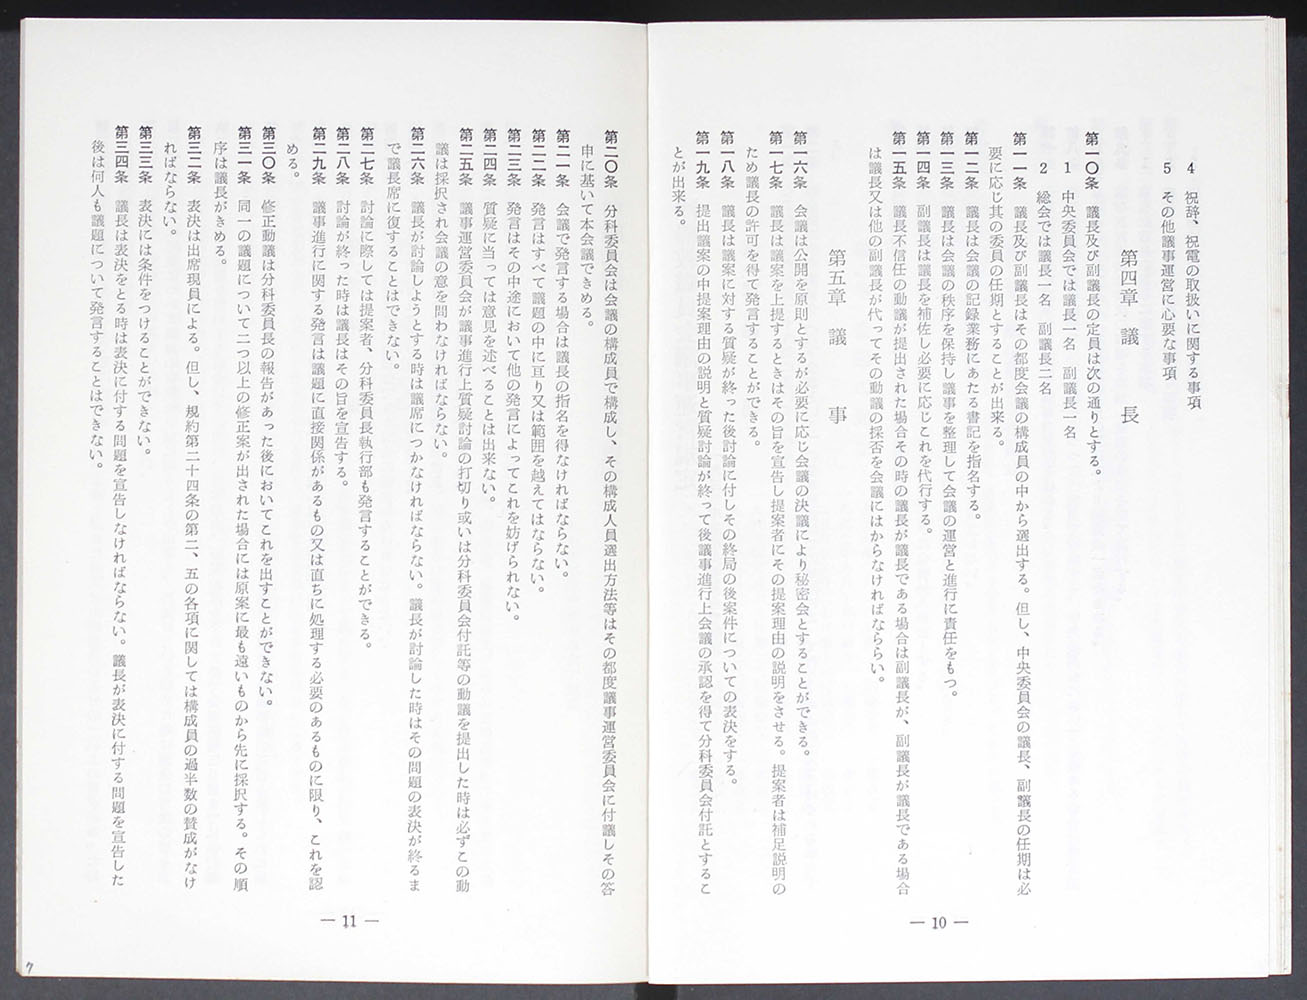 4　祝辞、祝電の取扱いに関する事項
5　その他議事運営に心要な事項
第四章　議　　長
第一〇条　議長及び副議長の定員は次の通りとする。
1　中央委員会では議長一名　副議長一名
2　総会では議長一名　副議長二名
第一一条　議長及び副議長はその都度会議の構成員の中から選出する。但し、中央委員会の議長、副議長の任期は必
要に応じ其の委員の任期とすることが出来る。
第一二条　議長は会議の記録業務にあたる書記を指名する。
第一三条　議長は会議の秩序を保持し議事を整理して会議の運営と進行に責任をもつ。
第一四条　副議長は議長を補佐し必要に応じこれを代行する。
第一五条　議長不信任の動議が提出された場合その時の議長が議長である場合は副議長が、副議長が議長である場合
は議長又は他の副議長が代ってその動議の採否を会議にはからなければなららい。
第五章　議　　事
第一六条　会議は公開を原則とするが必要に応じ会議の決議により秘密会とすることができる。
第一七条　議長は議案を上提するときはその旨を宣告し提案者にその提案理由の説明をさせる。提案者は補足説明の
ため議長の許可を得て発言することができる。
第一八条　議長は議案に対する質疑が終った後討論に付しその終局の後案件についての表決をする。
第一九条　提出議案の中提案理由の説明と質疑討論が終って後議事進行上会議の承認を得て分科委員会付託とするこ
とが出来る。
— 10 —
第二〇条　分科委員会は会議の構成員で構成し、その構成人員選出方法等はその都度議事運営委員会に付議しその答
申に基いて本会議できめる。
第二一条　会議で発言する場合は議長の指名を得なければならない。
第二二条　発言はすべて議題の中に亙り又は範囲を越えてはならない。
第二三条　発言はその中途において他の発言によってこれを妨げられない。
第二四条　質疑に当っては意見を述べることは出来ない。
第二五条　議事運営委員会が議事進行上質疑討論の打切り或いは分科委員会付託等の動議を提出した時は必ずこの動
議は採択され会議の意を問わなければならない。
第二六条　議長が討論しようとする時は議席につかなければならない。議長が討論した時はその問題の表決が終るま
で議長席に復することはできない。
第二七条　討論に際しては提案者、分科委員長執行部も発言することができる。
第二八条　討論が終った時は議長はその旨を宣告する。
第二九条　議事進行に関する発言は議題に直接関係があるもの又は直ちに処理する必要のあるものに限り、これを認
める。
第三〇条　修正動議は分科委員長の報告があった後においてこれを出すことができない。
第三一条　同一の議題について二つ以上の修正案が出された場合には原案に最も遠いものから先に採択する。その順
序は議長がきめる。
第三二条　表決は出席現員による。但し、規約第二十四条の第二、五の各項に関しては構成員の過半数の賛成がなけ
ればならない。
第三三条　表決には条件をつけることができない。
第三四条　議長は表決をとる時は表決に付する問題を宣告しなければならない。議長が表決に付する問題を宣告した
後は何人も議題について発言することはできない。
— 11 —
7